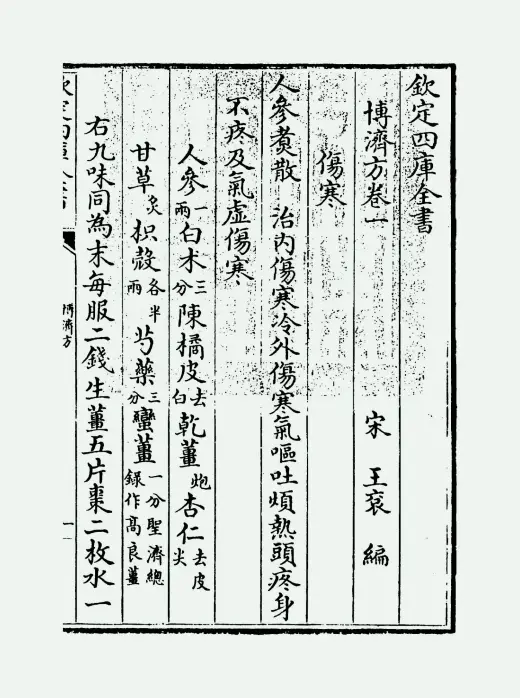 欽定四庫全書
博濟方卷一
宋 王衮 編
傷寒
人參煑散 治內傷寒冷外傷寒氣嘔吐煩熱頭疼身
不疼及氣虛傷寒
人參一兩白术三分陳橘皮去白乾薑炮杏仁去皮尖
甘草炙枳殻各半兩芍藥三分蠻薑一分聖濟總録作髙良薑
右九味同為末每服二錢生薑五片棗二枚水一
博濟方
一